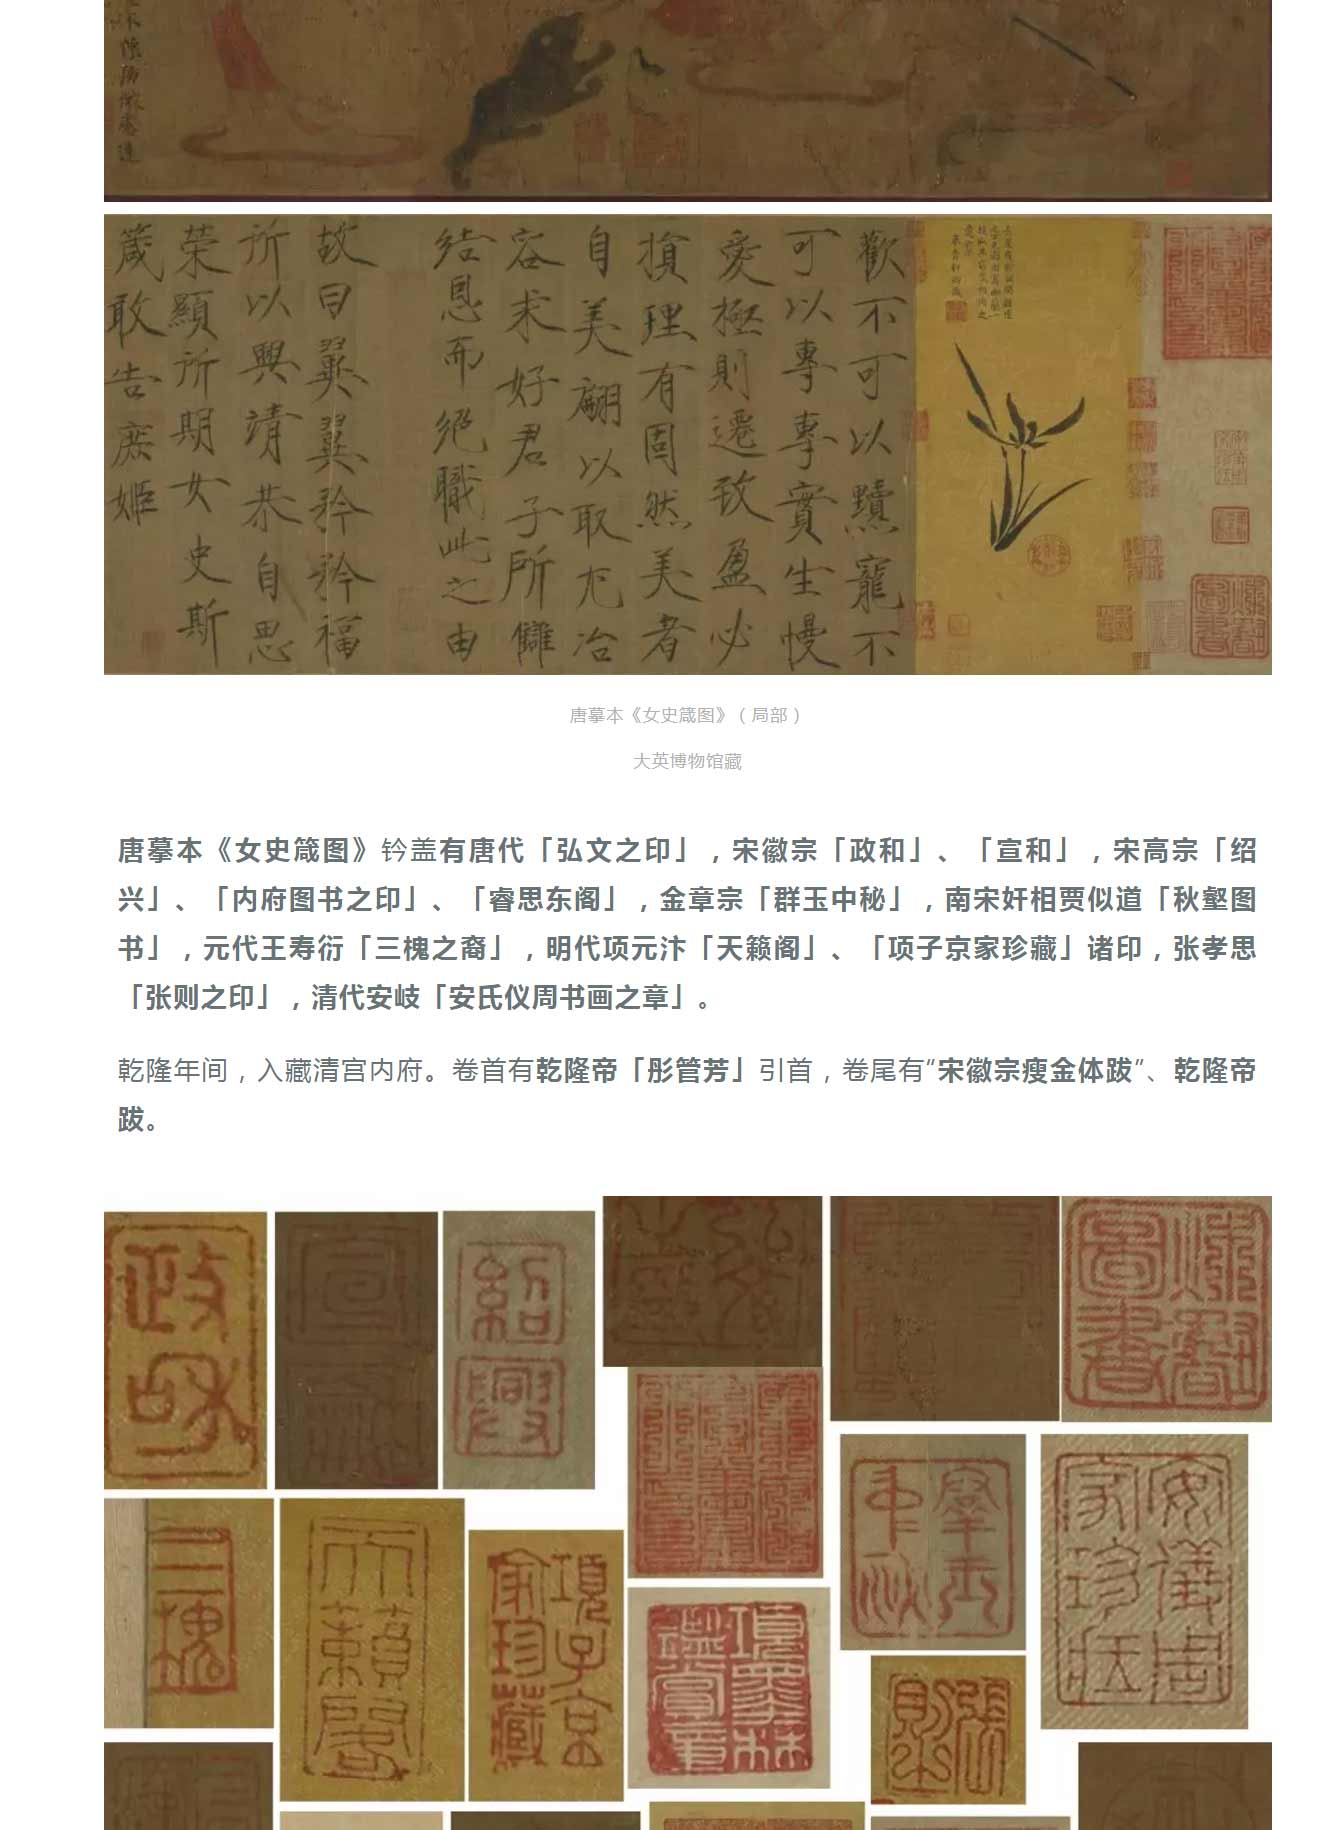 歡不可以黷寵不
可以專專實生慢
愛極則遷致盈必
損理有固然美者
自美翩以取尤冶
容求好君子所讎
結恩而絕職此之由
故曰翼翼矜矜福
所以興靖恭自思
榮顯所期女史斯
箴敢告庶姬
唐摹本《女史箴图》（局部）
大英博物馆藏
唐摹本《女史箴图》钤盖有唐代「弘文之印」，宋徽宗「政和」、「宣和」，宋高宗「绍
兴」、「内府图书之印」、「睿思东阁」，金章宗「群玉中秘」，南宋奸相贾似道「秋壑图
书」，元代王寿衍「三槐之裔」，明代项元汴「天籁阁」、「项子京家珍藏」诸印，张孝思
「张则之印」，清代安岐「安氏仪周书画之章」。
乾隆年间，入藏清宫内府。卷首有乾隆帝「彤管芳」引首，卷尾有“宋徽宗瘦金体跋”、乾隆帝
跋。
政和
紹興
秋壑圖書
群玉中秘
安儀周家珍藏
三槐
天籟閣
項子京家珍藏
項墨林鑑賞章
張則之